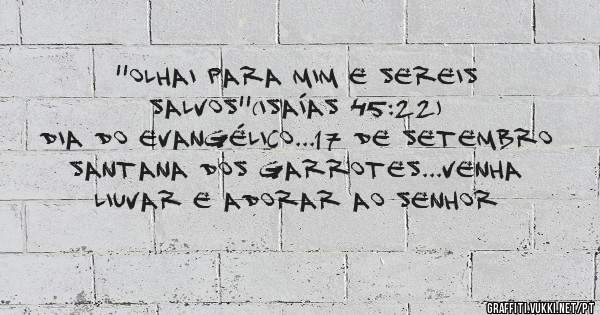 "OLHAI PARA MIM E SEREIS
SALVOS"(ISAÍAS 45:22)
DIA DO EVANGÉLICO...17 DE SETEMBRO
SANTANA DOS GARROTES...VENHA
LIUVAR E ADORAR AO SENHOR
GRAFFITI.VUKKI.NET/PT